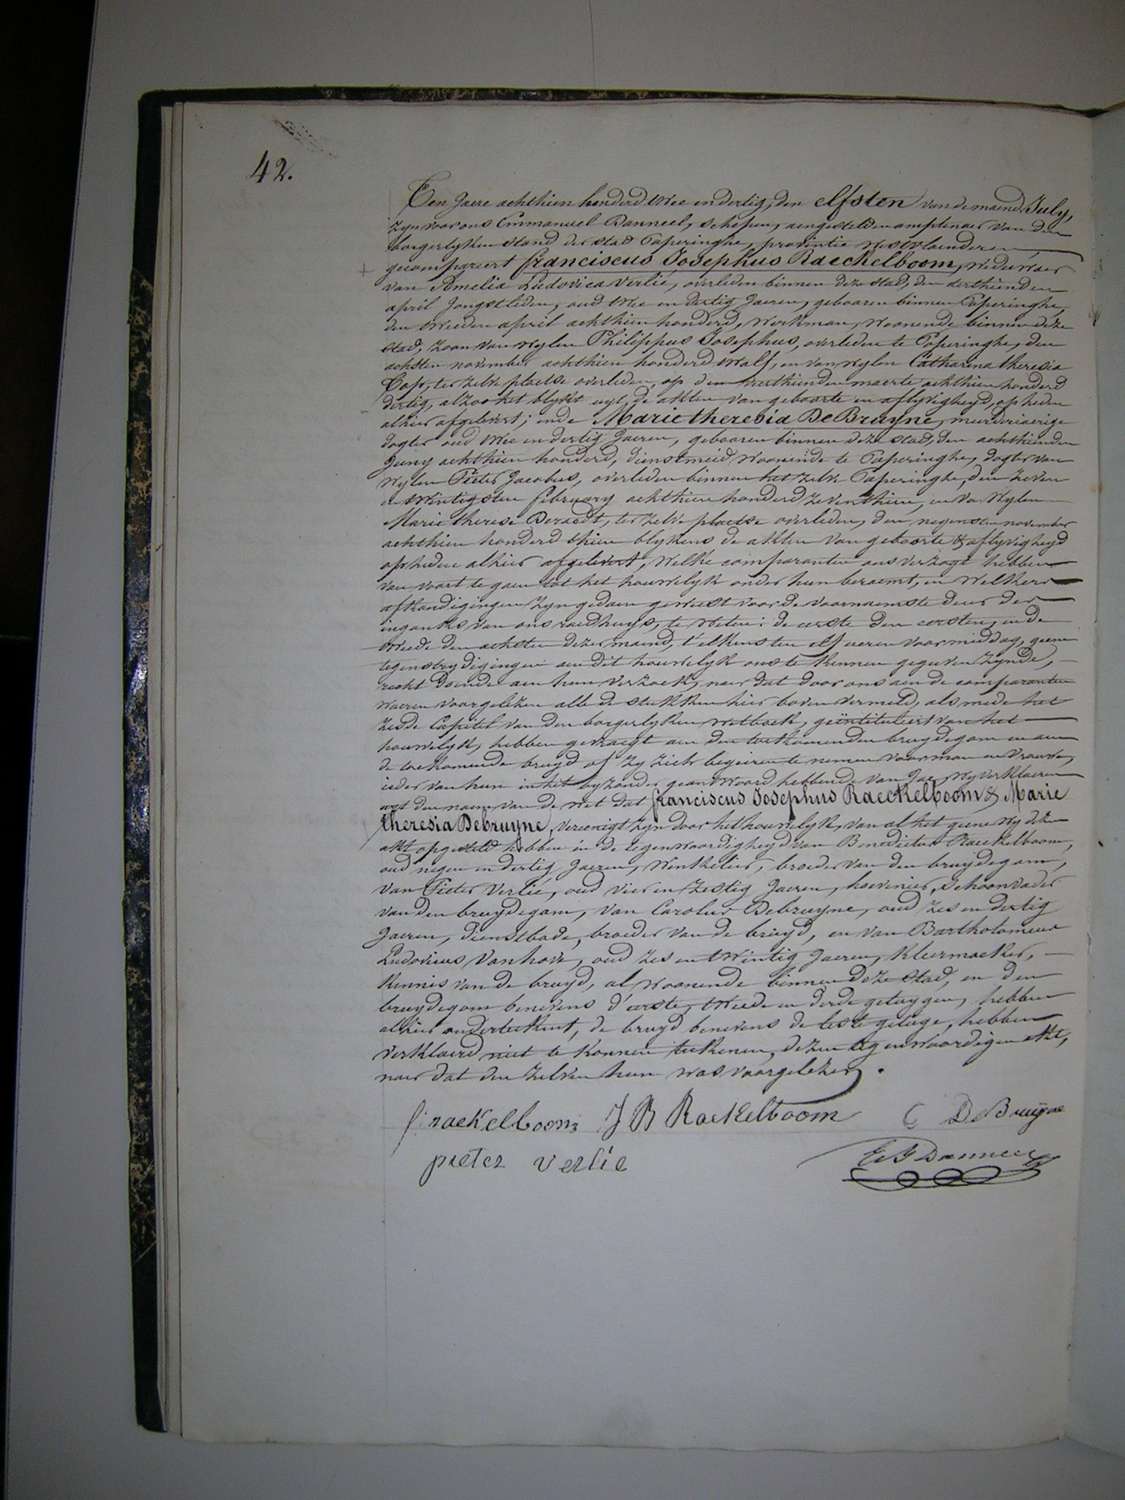 42.
Ten Jaere achthien honderd twee en dertig, den elfsten van de maend July,
zyn voor ons Emmanuel Banneel, schepen, aengestelden amptenaer van den
borgerlyken stand der stad Poperinghe, provintie westvlaenderen
gecompareert franciscus Josephus Raeckelboom, Weduwaer
van Amelia Ludovica Verlie, overleden binnen deze stad, den derthienden
april Jongstleden, oud twee en dertig Jaeren, gebooren binnen Poperinghe,
den tweeden april achthien honderd, Werkman, Woonende binnen deze
stad, zoon van Wylen Philippus Josephus, overleden te Poperinghe, den
achsten november achthien honderd twalf, en van Wylen Catharina theresia
Top, ter zelve plaetse overleden, op den maerte achthien honderd
dertig, alzoo het blykt uyt de akten van geboorte en aflyvigheyd, op heden
alhier afgelevert; ende Marie theresia De Bruyne, meerderjaerige
dogter oud twee en dertig Jaeren, gebooren binnen deze stad, den achthienden
Juny achthien honderd, dienstmeid, Woonende te Poperinghe, dogter van
Wylen Pieter Jacobus, overleden binnen het zelve Poperinghe, den zeven
en twintigsten february achthien honderd zeventhien, en van Wylen
Marie therese Beraedt, ter zelve plaetse overleden, den negensten november
achthien honderd thien blykens de akten van geboorte & aflyvigheyd
op heden alhier afgelevert, Welke comparanten ons verzogt hebben
van voort te gaen tot het houwelyk onder hun beraemt, en Welkers
afkondigingen zyn gedaen geweest voor de voornaemste deur der
ingank van ons raedhuys, te Weten: de eerste den eersten, en de
tweede den achsten dezer maend, t'elkensten elf ueren voormiddag, geene
tegenstrydigingen aen dit houwelyk ons te kennen gegeven zynde,
recht doende aen hun verzoek, naer dat door ons aen de comparanten
waeren voorgelezen alle de stukken hier boven vermeld, als mede het
zesde Capitel van den borgerlyken wetboek, geintituleert van het
houwelyk, hebben gevraegt aen den toekomenden bruydegom en aen
de toekomende bruyd of zy zich begeiren te nemen voor man en vrouwe,
ieder van hun in het byzonder geantwoord hebbende van Jae, Wy verklaeren
uyt den naem van de wet dat franciscus Josephus Raeckelboom & Marie
theresia Debruyne, vereenigt zyn door het houwelyk, van al het geene wy dezen
akt opgesteld hebben in de tegenwoordigheyd van Benedictus Raeckelboom,
oud negen en dertig Jaeren, Winkelier, broeder van den bruydegom,
van Pieter Verlie, oud vier en zestig Jaeren, hovenier, schoonvader
van den bruydegom, van Carolus Debruyne, oud zes en dertig
Jaeren, dienstbode, broeder van de bruyd, en van Bartholomeus
Ludovicus Vanhove, oud zes en twintig Jaeren, Kleermaeker,
Kennis van de bruyd, al woonende binnen deze stad, en den
bruydegom benevens d'eerste, tweede en derde getuygen, hebben
alhier onderteekent, de bruyd benevens de leste getuige, hebben
verklaerd niet te konnen teekenen, dezen tegenwoordigen akt,
naer dat den zelven hun was voorgelezen.
f raekelboom J B Raekelboom C De Bruijne
pieter verlie E J Banneel